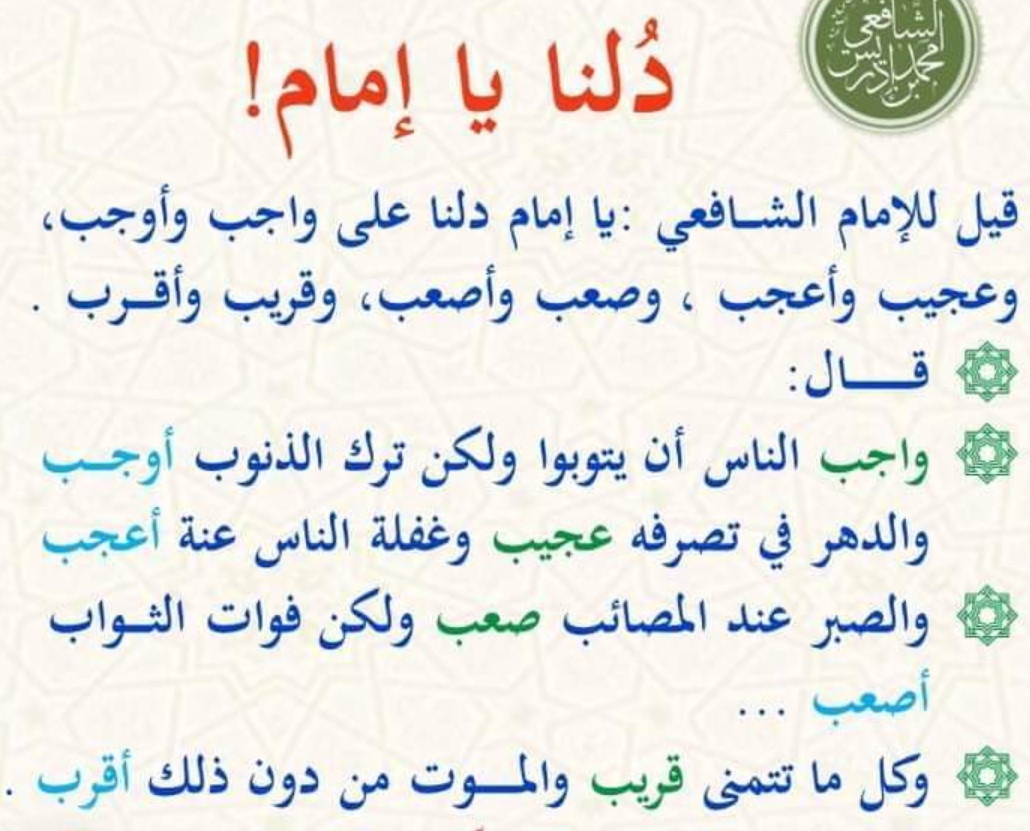 الشافعي
محمد بن إدريس
دُلنا يا إمام!
قيل للإمام الشــافعي :يا إمام دلنا على واجب وأوجب،
وعجيب وأعجب ، وصعب وأصعب، وقريب وأقــرب .
قـــــال:
واجب الناس أن يتوبوا ولكن ترك الذنوب أوجــب
والدهر في تصرفه عجيب وغفلة الناس عنة أعجب
والصبر عند المصائب صعب ولكن فوات الثــواب
أصعب ...
وكل ما تتمنى قريب والمـــوت من دون ذلك أقرب .